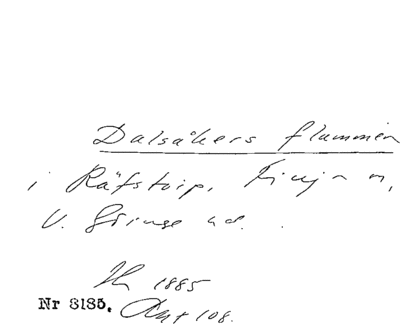 Dalsåkers flammen
i Räfstorp, Finja n,
V. Göinge hd.
1885
Nr 8185. Ant 108.